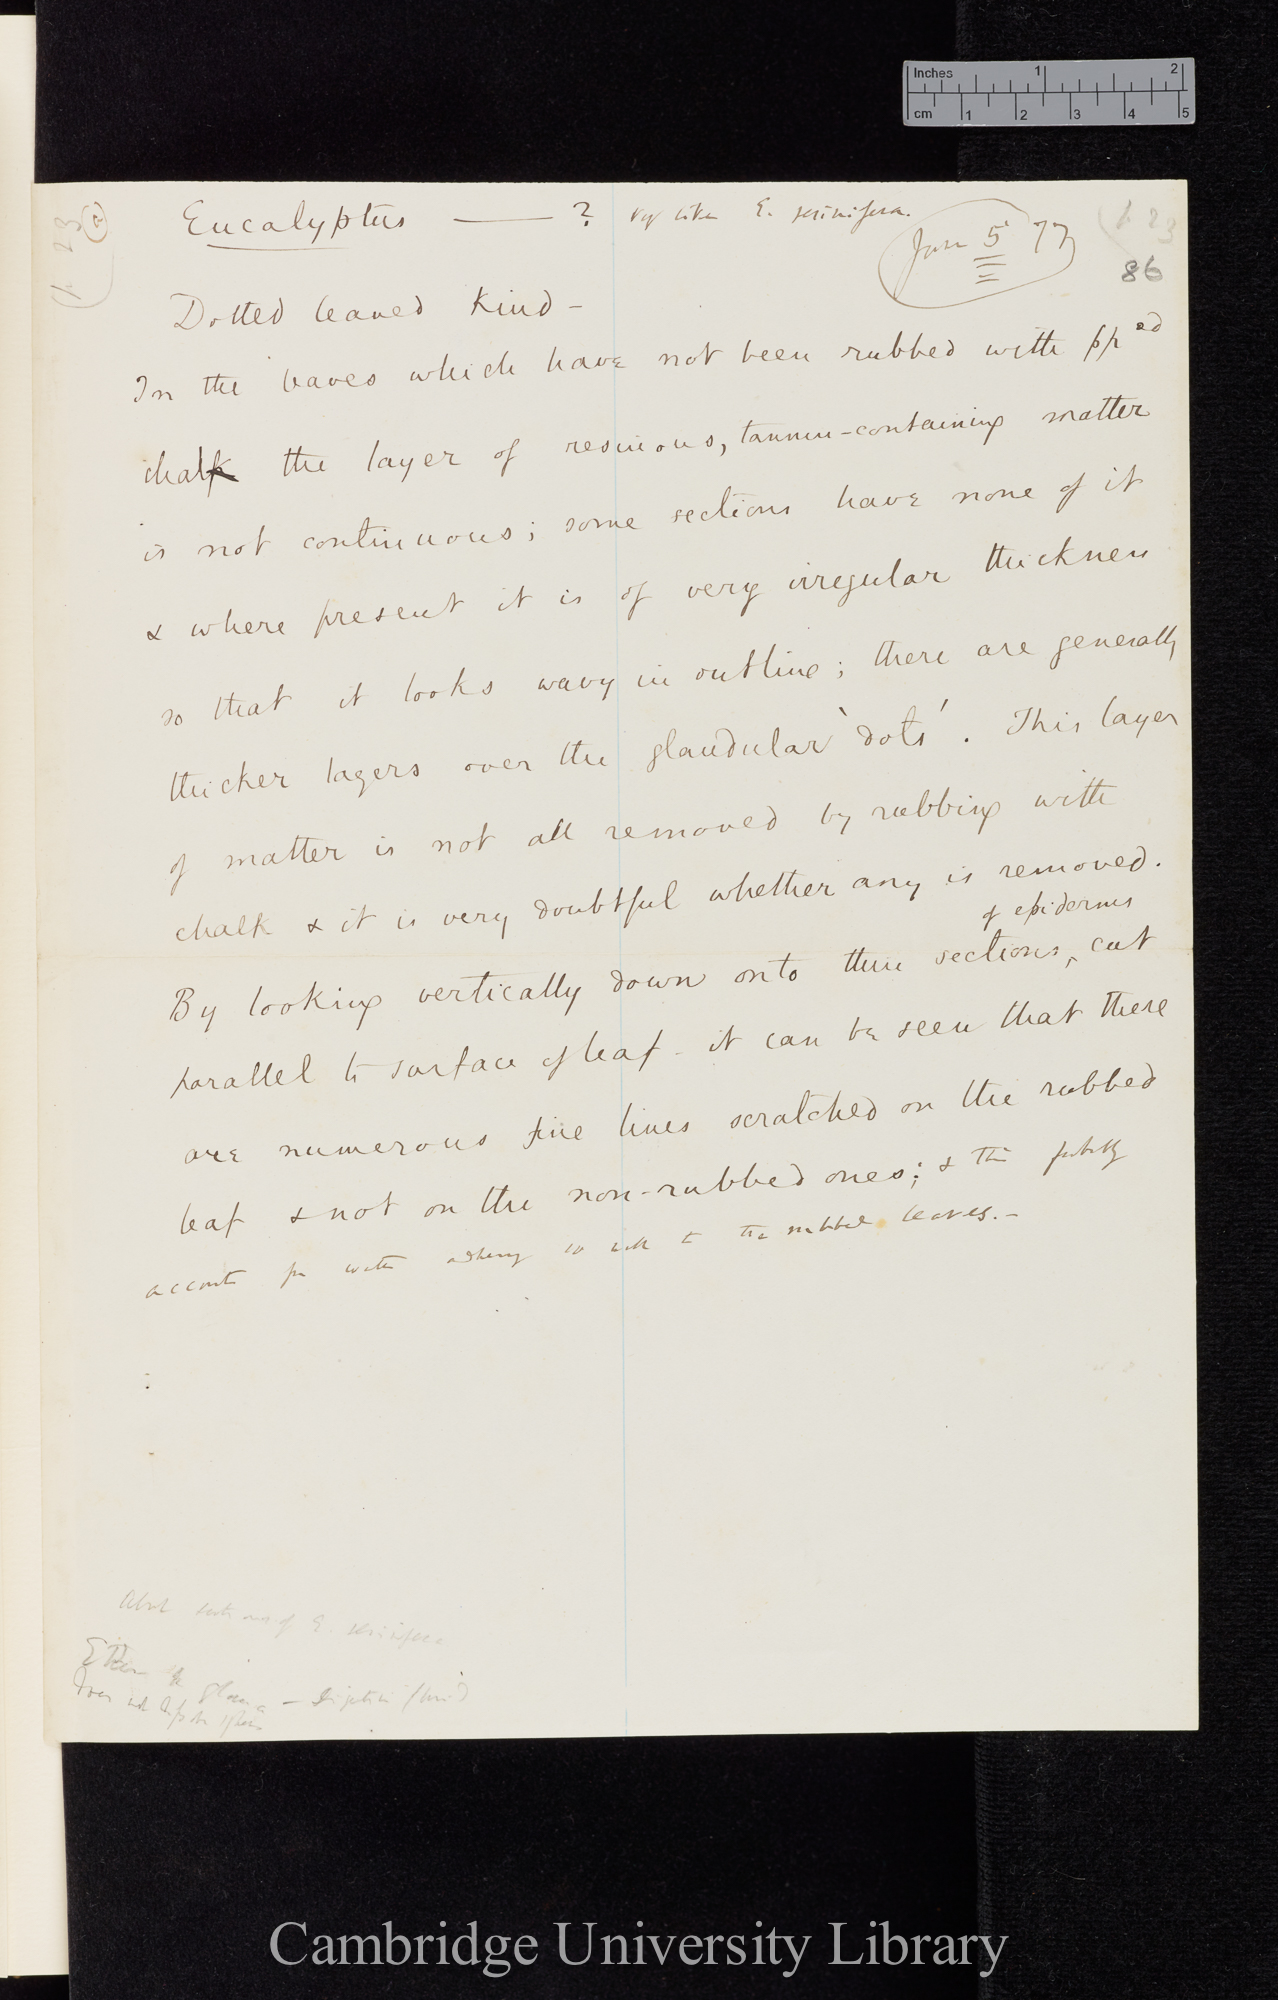 Inches 1 2
cm 1 2 3 4 5
Eucalyptus —— ? v. like E. resinifera.
Jan 5 77
86
Dotted leaved kind –
In the leaves which have not been rubbed with pped
chalk the layer of resinous, tannin-containing matter
is not continuous; some sections have none of it
& where present it is of very irregular thickness
so that it looks wavy in outline; there are generally
thicker layers over the glandular 'dots'. This layer
of matter is not all removed by rubbing with
chalk & it is very doubtful whether any is removed.
of epidermis
By looking vertically down onto thin sections, cut
parallel to surface of leaf – it can be seen that there
are numerous fine lines scratched on the rubbed
leaf & not on the non-rubbed ones; & this probably
accounts for water adhering so well to the rubbed leaves. –
E. resinifera
Cambridge University Library